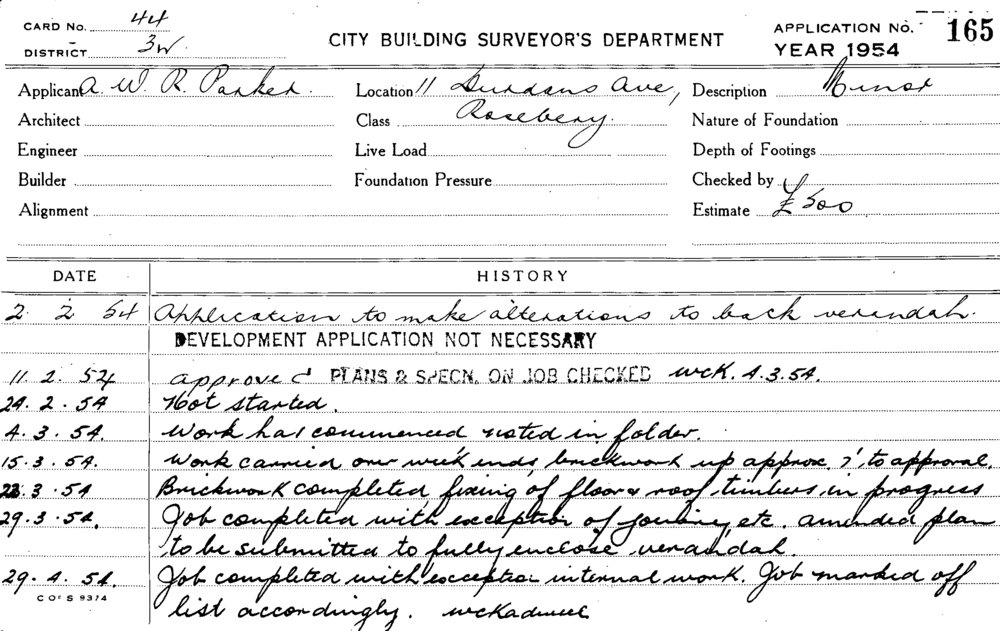 CARD No. 44
DISTRICT 3W
CITY BUILDING SURVEYOR'S DEPARTMENT
APPLICATION No. 165
YEAR 1954
Applicant A. W. R. Parker. Location 11 Durdans Ave, Description Minor
Architect Class Rosebery. Nature of Foundation
Engineer Live Load Depth of Footings
Builder Foundation Pressure Checked by
Alignment Estimate £500
DATE HISTORY
2 2 54 Application to make alterations to back verandah.
DEVELOPMENT APPLICATION NOT NECESSARY
11. 2. 54 approved PLANS & SPECN. ON JOB CHECKED WCK. 4.3.54.
24. 2. 54 Not started.
4. 3. 54. Work has commenced noted in folder.
15. 3. 54. Work carried over week ends, brickwork up approx. 7' to approval.
23. 3. 54 Brickwork completed fixing of floor & roof timbers in progress
29. 3. 54. Job completed with exception of joinery etc. amended plan
to be submitted to fully enclose verandah.
29. 4. 54. Job completed with exception internal work. Job marked off
C OF S 9374
list accordingly.